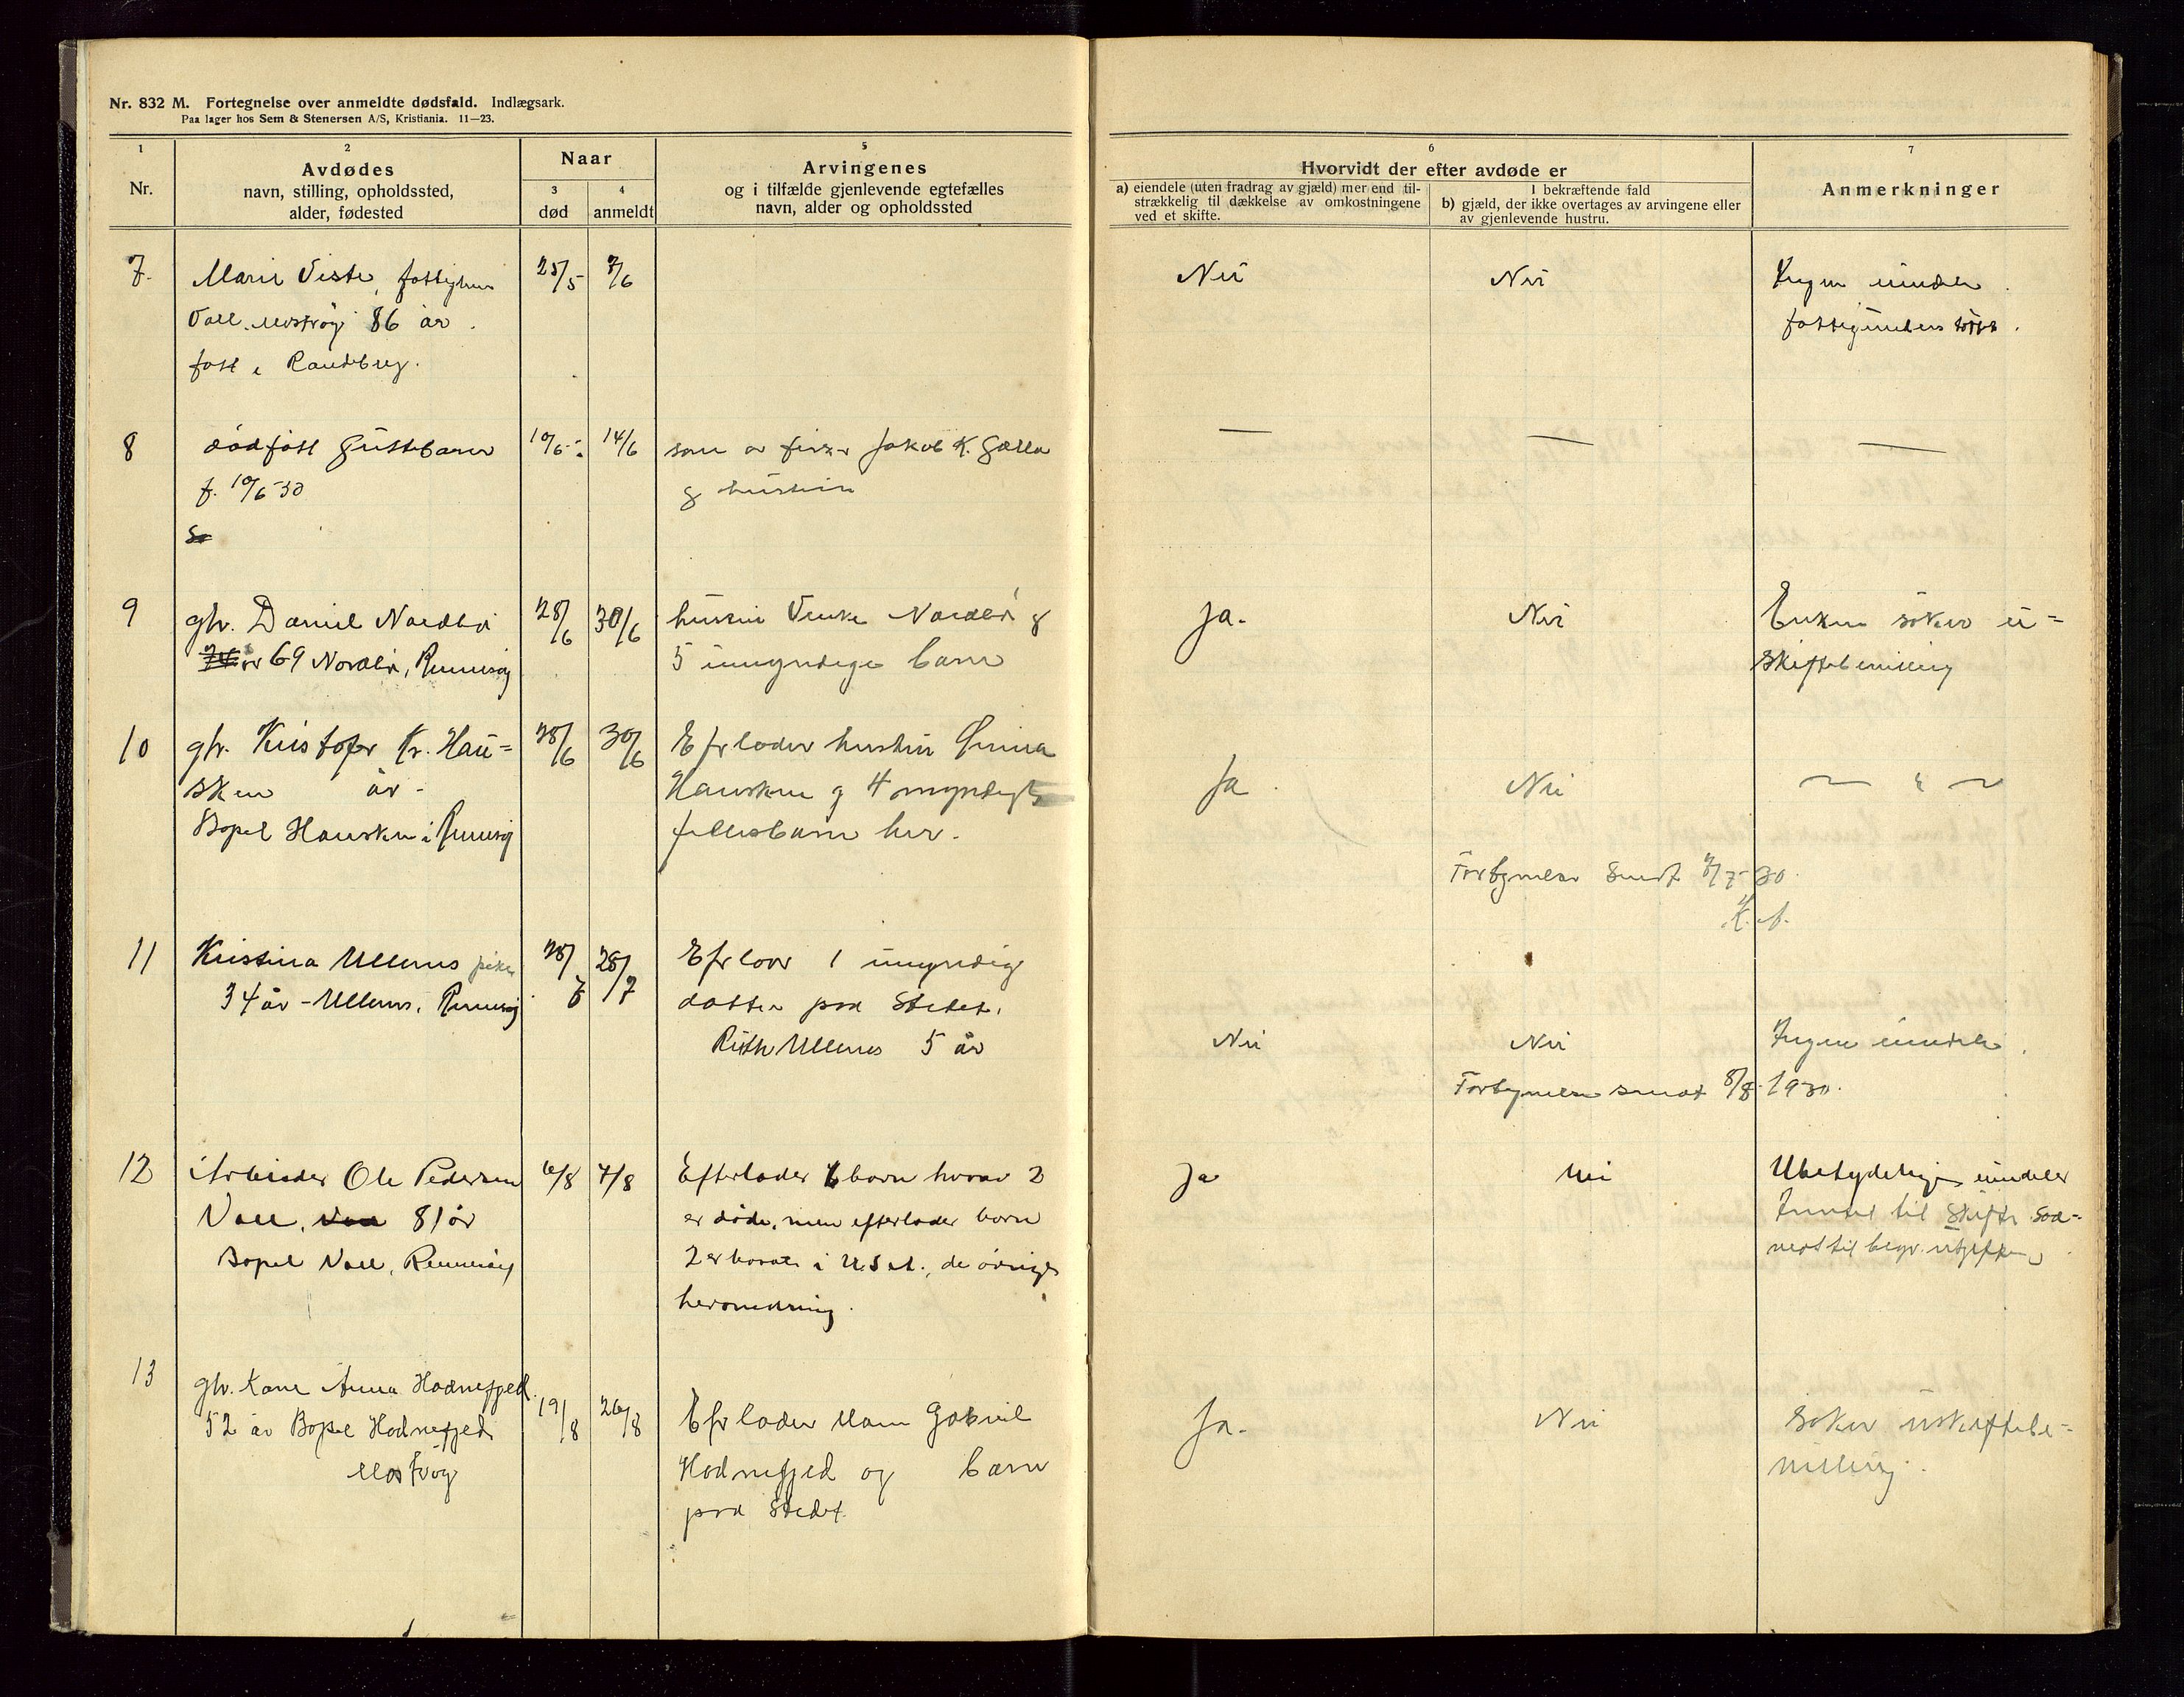 Nr. 832 M. Fortegnelse over anmeldte dødsfald. Indlægsark.
Paa lager hos Sem & Stenersen A/S, Kristiania. 11—23.
1
Nr.
2
Avdødes
navn, stilling, opholdssted,
alder, fødested
Naar
3
død
4
anmeldt
5
Arvingenes
og i tilfælde gjenlevende egtefælles
navn, alder og opholdssted
6
Hvorvidt der efter avdøde er
a) eiendele (uten fradrag av gjæld) mer end til-
strækkelig til dækkelse av omkostningene
ved et skifte.
I bekræftende fald
b) gjæld, der ikke overtages av arvingene eller
av gjenlevende hustru.
7
Anmerkninger
7. Marie Viste, fattighus 25/5 7/6 Nei Nei Ingen eiendele.
Vall, Mosterøy 86 år.
født i Randeberg.
8 dødfött guttebarn 10/6 14/6 som er fisker Jakob K. — — —
f. 10/6-30 g hustru
9 gh. Daniel Nordbø 28/6 30/6 hustru Nordbø g Ja. Nei Enken søker u=
år 69 Nordbø, Rennesøy 5 umyndige barn skiftebevilling
10 gh. Kristofer Kr. Hau= 28/6 30/6 Efrlader hustru
sken år - Hausken g 4 myndige Ja. Nei — " —
Bopel Hausken i Rennesøy fellesbarn her.
Forkynnelse sendt 8/7-30.
11 Kristina Ullenes pike 28/7 28/7 Efrlader 1 umyndig
34 år - Ullenes, Rennesøy datter paa Stedet.
Ruth Ullenes 5 år Nei Nei Ingen eiendele.
Forkynnelse sendt 8/8. 1930.
12 Arbeider Ole Pedersen 6/8 7/8 Efterlader barn hvorav 2 Ja Nei Ubetydelige eiendeler
Vall, 81 år er døde, men efterlader barn til Skifte
Bopel Vall, Rennesøy 2 er bosatt i U.S.A., de övrige til begr. utgifter
heromkring.
13 gh. Kone Anna Hodnefjeld.
52 år Bopel Hodnefjeld 19/8 26/8 Efrlader Mann Gabriel Ja. Nei Søker uskiftebe=
Mosterøy Hodnefjeld og barn villing.
paa Stedet.